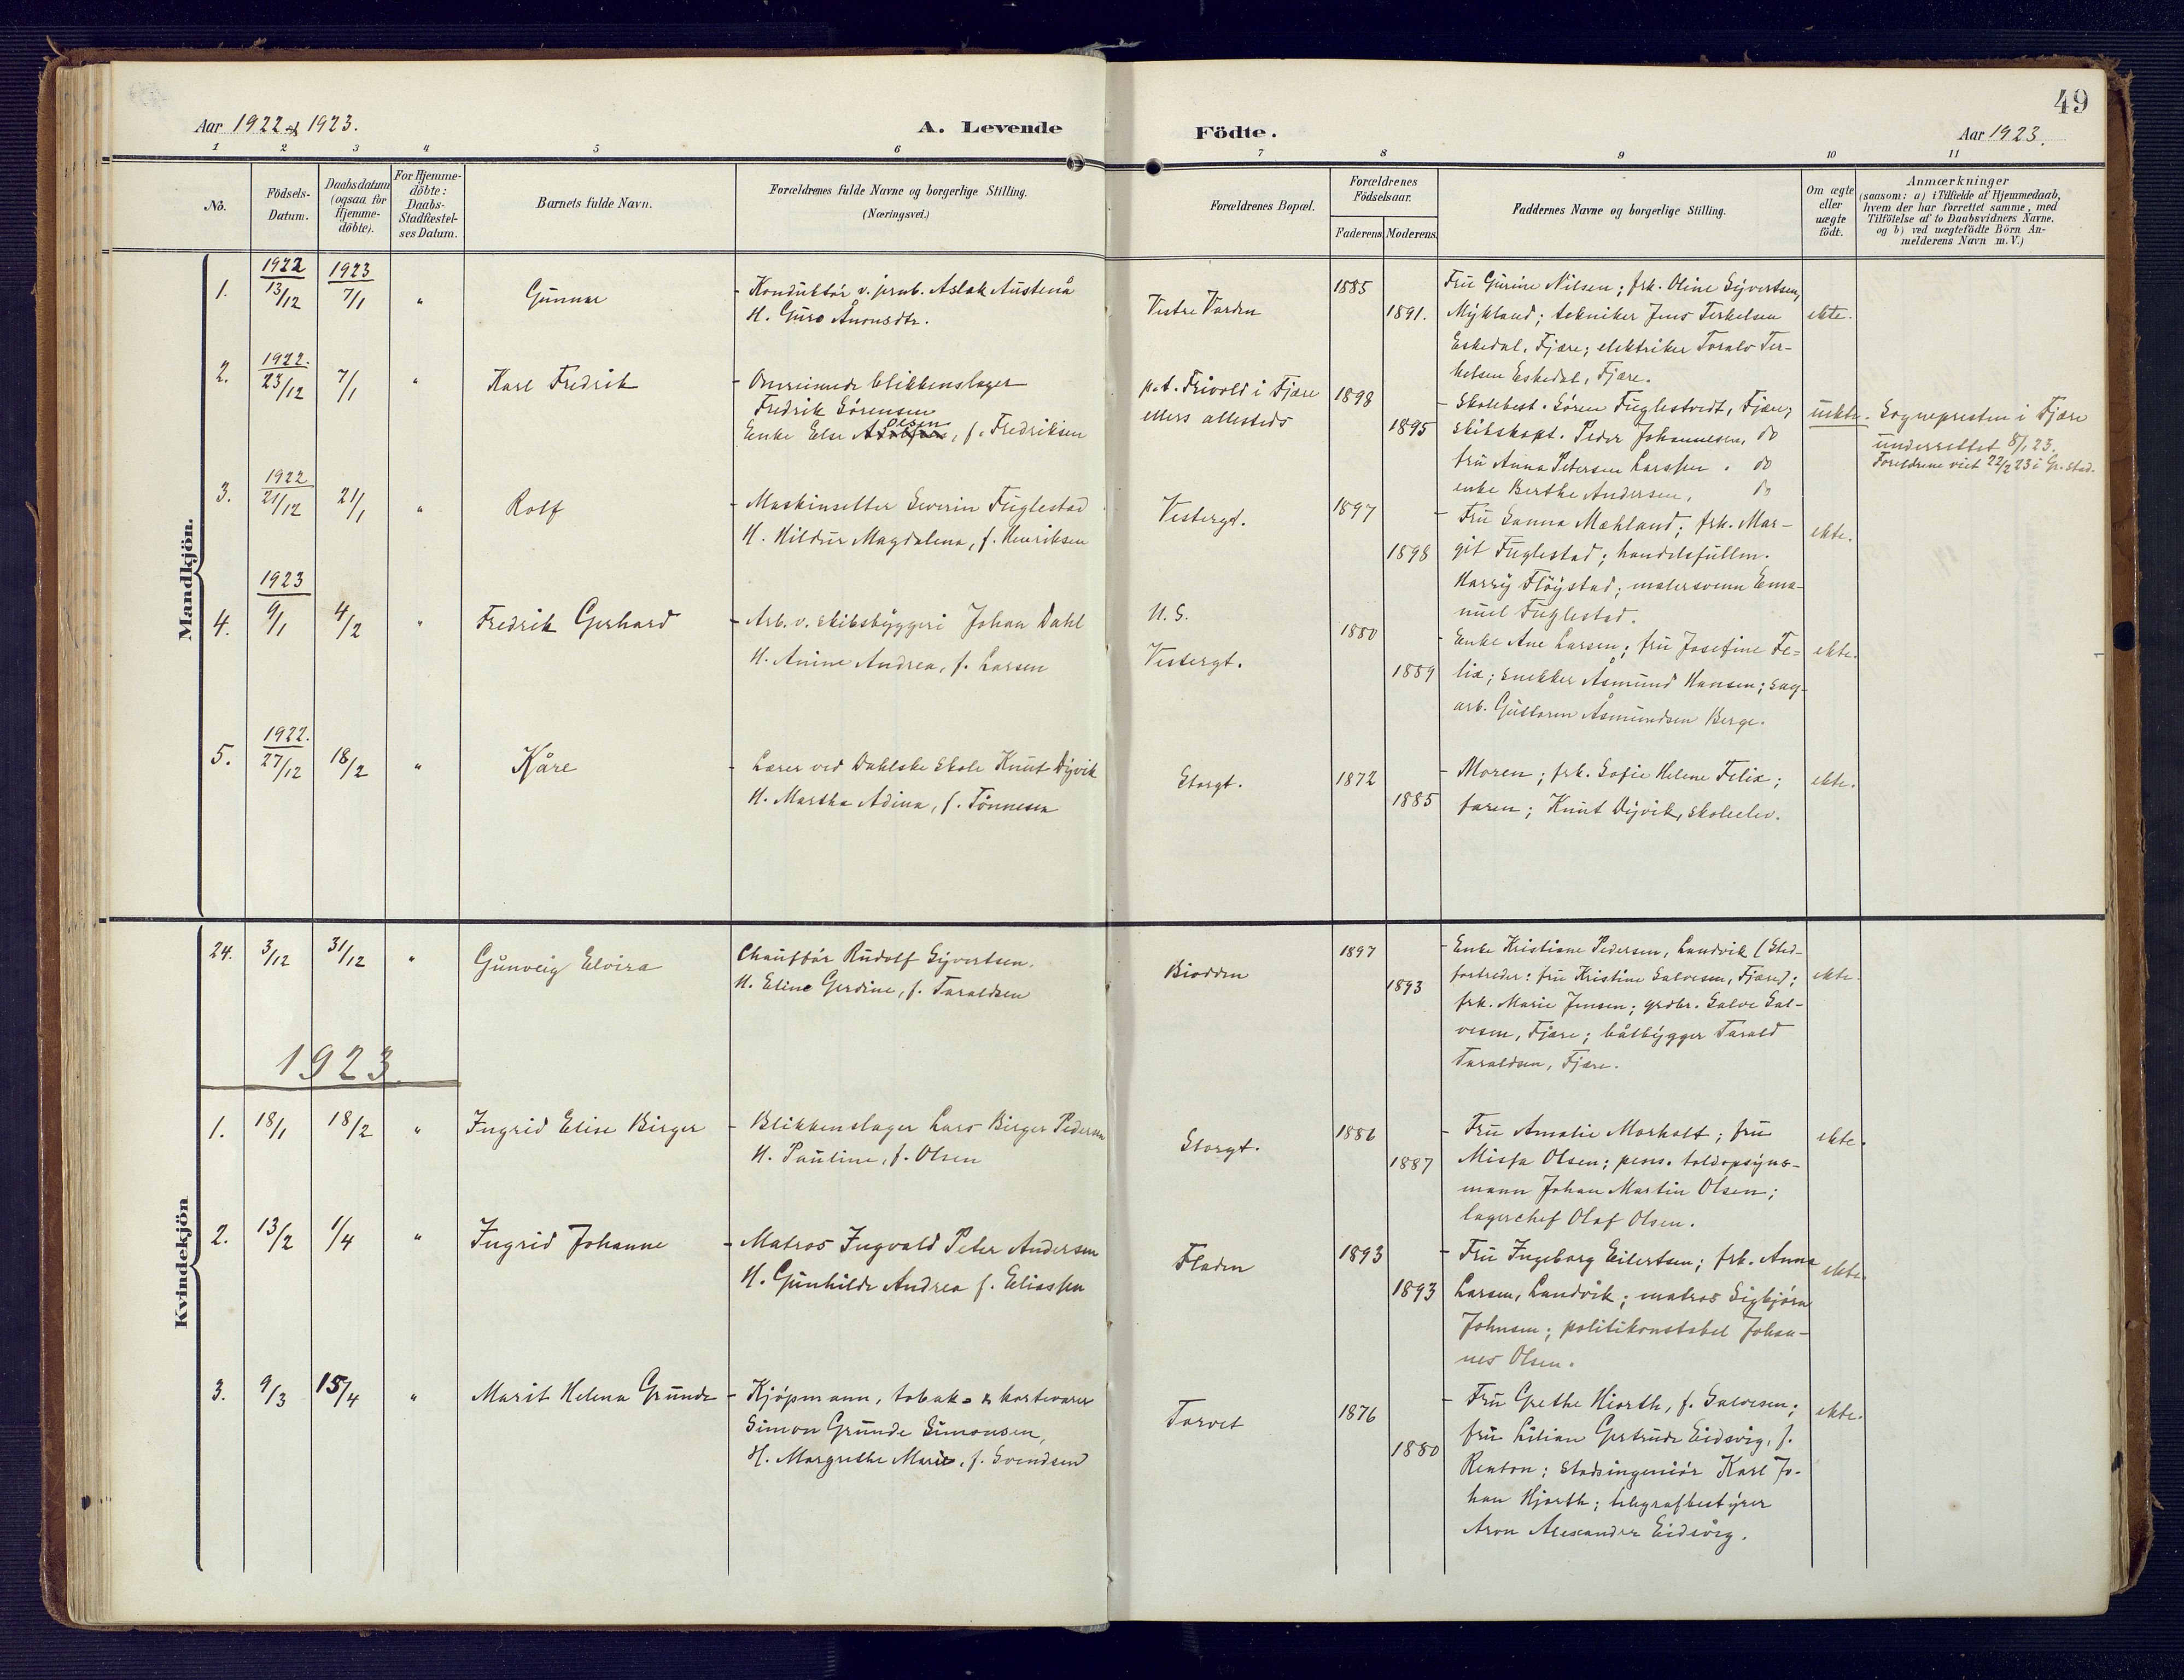 49
Aar 1922 & 1923.
A. Levende
Födte.
Aar 1923.
1 2 3 4 5 6 7 8 8 9 10 11
No.
Födsels-
Datum.
Daabsdatum
(ogsaa for
Hjemme-
döbte).
For Hjemme-
döbte:
Daabs-
Stadfæstel-
ses Datum.
Barnets fulde Navn.
Forældrenes fulde Navne og borgerlige Stilling.
(Næringsvei.)
Forældrenes Bopæl.
Forældrenes
Födselsaar.
Faderens. Moderens.
Faddernes Navne og borgerlige Stilling.
Om ægte
eller
uægte
födt.
Anmærkninger
(saasom: a) i Tilfælde af Hjemmedaab,
hvem der har forrettet samme, med
Tilföielse af to Daabsvidners Navne,
og b) ved uægtefödte Börn An-
melderens Navn m. V.)
Mandkjön.
1.
1922
13/12
1923
7/1
"
Gunnar
- Konduktør v. jernb. Aslak Austenå
H. Guro Ånonsdtr.
Vestre Varden
1885
1891.
Fru Gurine Nilsen; frk. Oline Syvertsen,
Mykland; tekniker Jens Terkelsen
Eskedal, Fjære; elektriker Toralv Ter-
kelsen Eskedal, Fjære.
ekte.
2.
1922.
23/12
7/1
"
Karl Fredrik
- Omreisende blikkenslager
Fredrik Sörensen
Olsen
Enke Else , f. Fredriksen
p.t. Frivold i Fjære
ellers allesteds
1898
1895
- Skolebest. Sören Fuglestvedt, Fjære;
skibskapt. Peder Johannesen, do
fru Anna Petersen Larssen, do
enke Berthe Andersen, do
uekte.
Sognepresten i Fjære
underrettet 8/1 23.
Foreldrene viet 22/2 23 i Gr.stad.
3.
1922
21/12
21/1
"
Rolf
- Maskinsetter Severin Fuglestad
H. Hildur Magdalena, f. Henriksen
Vestergt.
1897
1898
- Fru Sanna Mæhland; frk. Mar-
git Fuglestad; handelsfullm.
Harry Flöystad; malersvenn Ema-
nuel Fuglestad.
ekte.
4.
1923
9/1
4/2
"
Fredrik Gerhard
- Arb. v. skibsbyggeri Johan Dahl
H. Anine Andrea, f. Larsen
N. S.
Vestergt.
1880
1889
- Enke Ane Larsen; fru Josefine Fe-
lix; snekker Åsmund Hansen; sag-
arb. Guttorm Åsmundsen Berge.
ekte.
5.
1922.
27/12
18/2
"
Kåre
- Lærer ved Dahlske skole Knut Dyvik
H. Martha Adina, f. Tönnesen
Storgt.
1872
1885
- Moren; frk. Sofie Helene Felix;
faren; Knut Dyvik, skoleelev.
ekte.
Kvindekjön
24.
3/12
31/12
"
Gunveig Elvira
Chauffør Rudolf Syvertsen.
H. Eline Gerdine, f. Taraldsen
Biodden
1897
1893
- Enke Kristiane Pedersen, Landvik (Sted-
fortreder: fru Kristine Salvesen, Fjære);
frk. Marie Jensen; grdbr. Salve Sal-
vesen, Fjære; båtbygger Tarald
Taraldsen, Fjære.
ekte.
1923.
1.
18/1
18/2
"
Ingrid Elise Birger
- Blikkenslager Lars Birger Pedersen
H. Pauline, f. Olsen
Storgt.
1886
1887
- Fru Amalie Morholt; fru
Missa Olsen; pens. toldopsyns-
mann Johan Martin Olsen;
lagerchef Olaf Olsen.
ekte.
2.
13/2
1/4
"
Ingrid Johanne
- Matros Ingvald Peter Andersen
H. Gunhilde Andrea f. Eliassen
Fladen
1893
1893
- Fru Ingeborg Eilertsen; frk. Anna
Larsen, Landvik; matros Sigbjörn
Johnsen; politikonstabel Johan-
nes Olsen.
ekte.
3.
9/3
15/4
"
Marit Helena Grunde
- Kjöpmann, tobak- & kortevarer
Simon Grunde Simonsen,
H. Margrethe Marie, f. Svendsen
Torvet
1876
1880
- Fru Grethe Hiorth, f. Salvesen;
fru Lilian Gertrude Eidsvig, f.
Renton; stadsingeniör Karl Jo-
han Hjorth; telegrafbestyrer
Aron Alexander Eidsvig.
ekte.